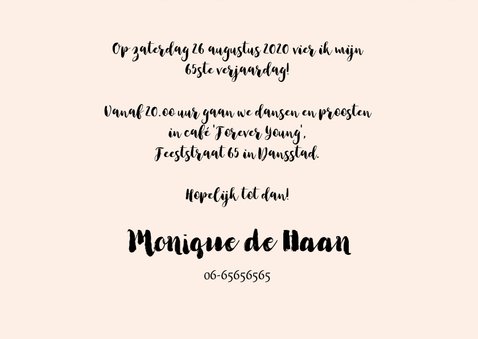 Op zaterdag 26 augustus 2020 vier ik mijn
65ste verjaardag!
Vanaf 20.00 uur gaan we dansen en proosten
in café 'Forever Young',
Feeststraat 65 in Dansstad.
Hopelijk tot dan!
Monique de Haan
06-65656565